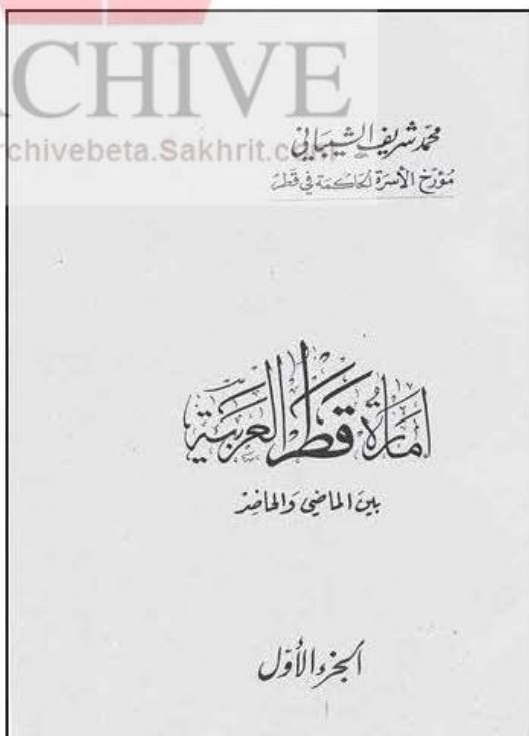 ARCHIVE
chivebeta.Sakhrit.com
محمد شريف الشيباني
مؤرخ الأسرة الحاكمة في قطر
إمارة قطر العربية
بين الماضي والحاضر
الجزء الأول